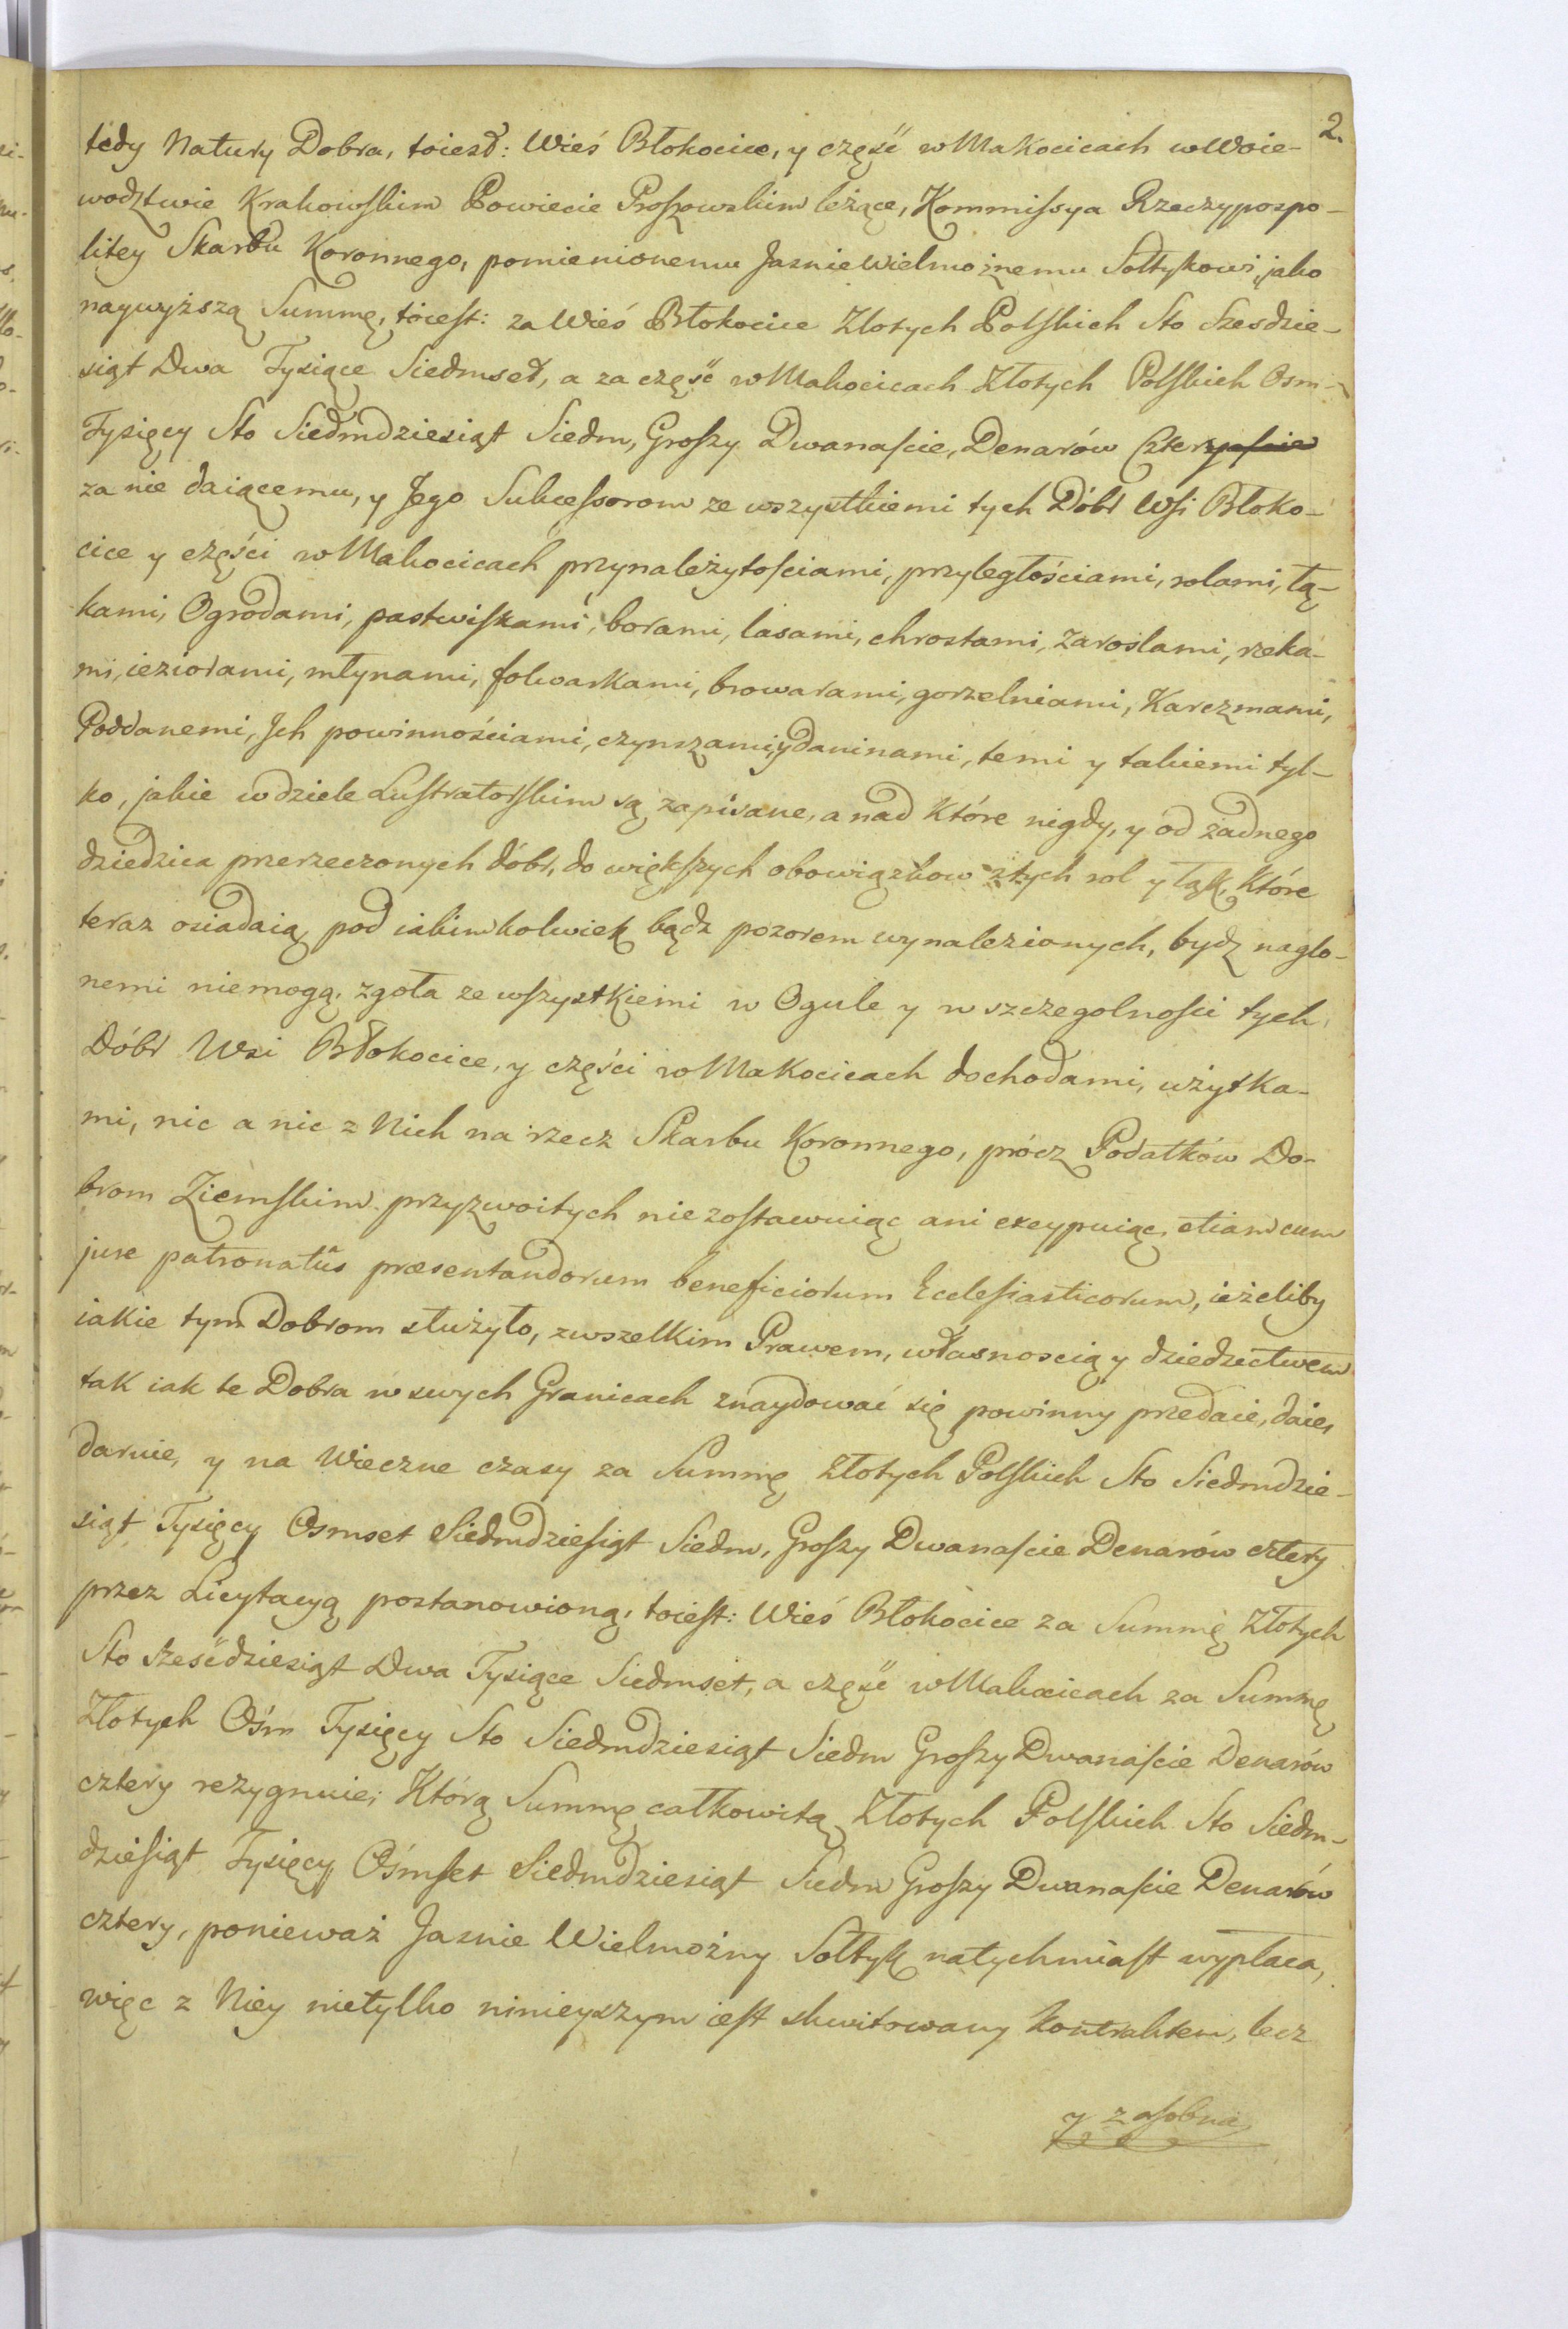 2.
tedy Natury Dobra, toiest: Wieś Błokocice, y część w Makocicach w Woie-
wodztwie Krakowskim Powiecie Proszowskim leżące, Kommissya Rzeczypospo-
litey Skarbu Koronnego, pomienionemu Jasnie Wielmożnemu Sołtykowi, jako
naywyższą Summę, toiest: za Wieś Błokocice Złotych Polskich Sto Szesdzie-
siąt Dwa Tysiące Siedmset, a za część w Makocicach Złotych Polskich Osm
Tysięcy Sto Siedmdziesiąt Siedm, Groszy Dwanaście, Denarów Czteryście
za nie daiącemu, y Jego Sukcessorom ze wszystkiemi tych Dóbr Wsi Błoko-
cice y części w Makocicach przynależytościami, przyległościami, rolami, łą-
kami, Ogrodami, pastwiskami, borami, lasami, chrostami, zaroslami, rzeka-
mi, ieziorami, młynami, folwarkami, browarami, gorzelniami, Karczmami,
Poddanemi, Jch powinnościami, czynszami, y daninami, temi y takiemi tyl-
ko, jakie w dziele Lustratorskim są zapisane, a nad które nigdy, y od żadnego
dziedzica przerzeczonych dóbr, do większych obowiązkow z tych rol y łąk, które
teraz osiadaią, pod iakimkolwiek bądz pozorem wynalezionych, bydz naglo-
nemi niemogą, zgoła ze wszystkiemi w Ogule y w szczegolności tych
Dóbr Wsi Błokocice, y części w Makocicach dochodami, użytka-
mi, nic a nic z Nich na rzecz Skarbu Koronnego, prócz Podatków Do-
brom Ziemskim przyzwoitych nie zostawuiąc ani excypuiąc, etiam cum
jure patronatûs præsentandorum beneficiorum Ecclesiasticorum, ieżeliby
iakie tym Dobrom służyło, z wszelkim Prawem, własnoscią y dziedzictwem
tak iak te Dobra w swych Granicach znaydować się powinny przedaie, daie,
daruie, y na Wieczne czasy za Summę Złotych Polskich Sto Siedmdzie-
siąt Tysięcy Osmset Siedmdziesiąt Siedm, Groszy Dwanaście Denarów cztery
przez Licytacyą postanowioną, toiest: Wieś Błokocice za Summę Złotych
Sto sześćdziesiąt Dwa Tysiące Siedmset, a część w Makocicach za Summę
Złotych Ośm Tysięcy Sto Siedmdziesiąt Siedm Groszy Dwanaście Denarów
cztery rezygnuie; Którą Summę całkowitą Złotych Polskich Sto Siedm-
dziesiąt Tysięcy Ośmset Siedmdziesiąt Siedm Groszy Dwanaście Denarów
cztery, ponieważ Jasnie Wielmożny Sołtyk natychmiast wypłaca,
więc z Niey nietylko ninieyszym iest skwitowany kontraktem, lecz
y z osobna